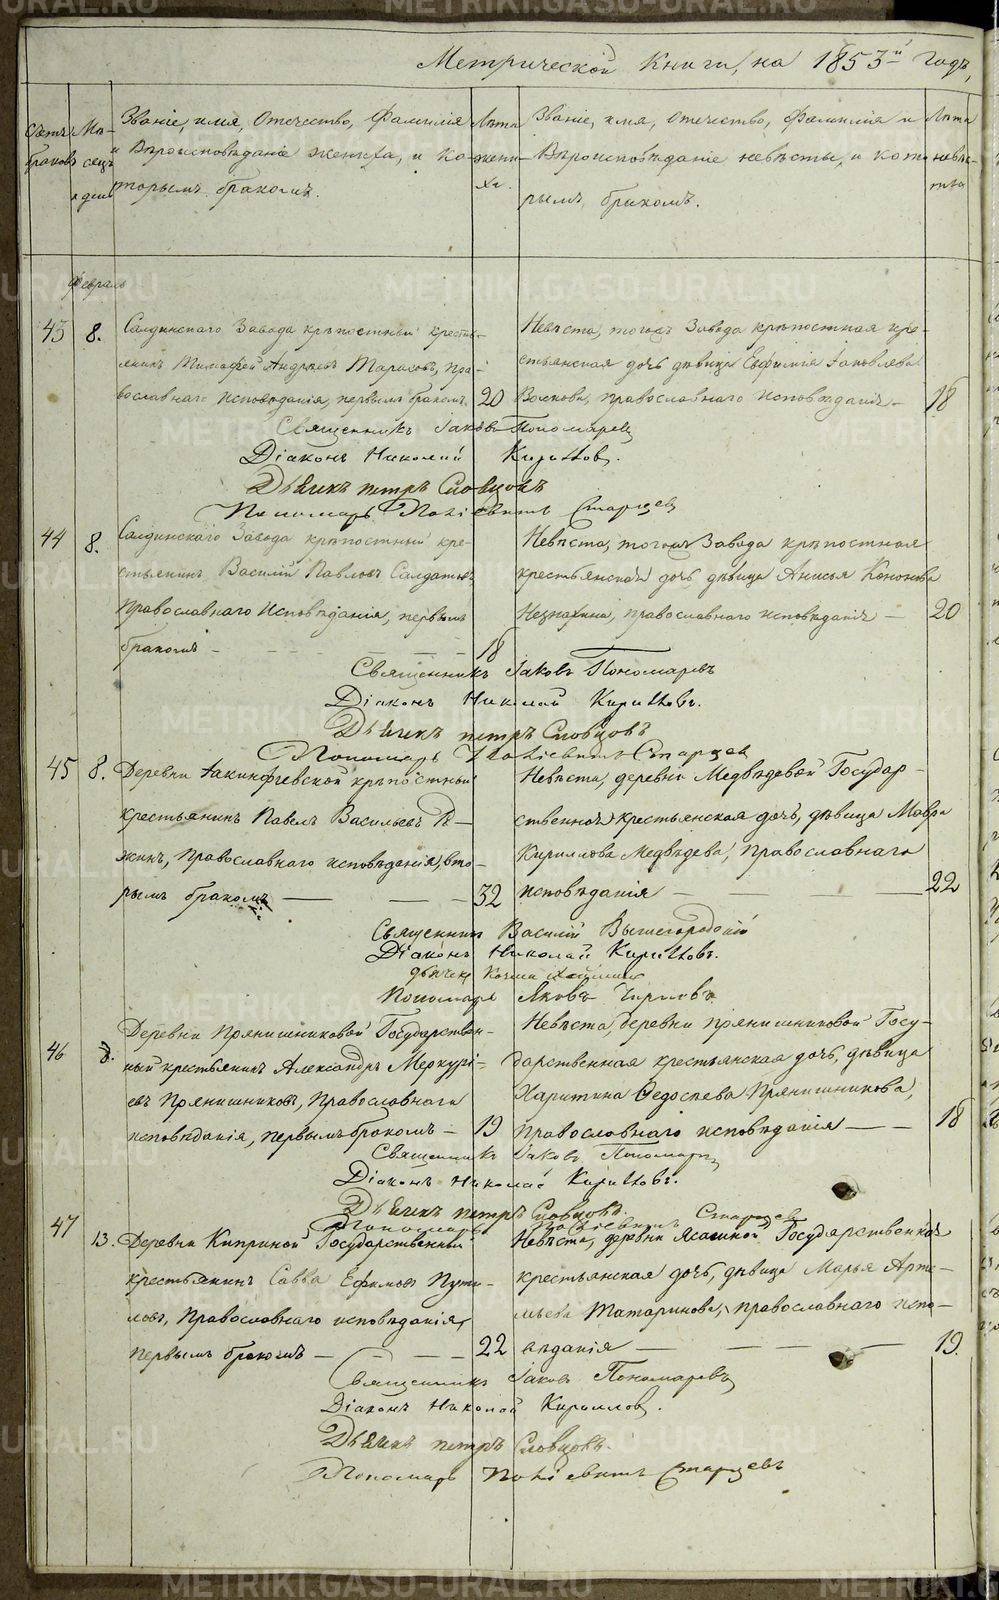 Метрической Книги, на 1853й годъ,
Счетъ браковъ
Мѣсецъ и день
Званіе, имя, Отечество, Фамилія
и Вѣроисповѣданіе жениха, и ко-
торымъ бракомъ.
Лѣта жени-
ха.
Званіе, имя, отечество, Фамилія и
Вѣроисповѣданіе невѣсты, и кото
рымъ бракомъ.
Лѣта невѣс-
ты
Февраль
43 8. Салдинскаго Завода крѣпостный крестья-
янинъ Андреевъ Тарасовъ, пра-
вославнаго исповѣданія, первымъ бракомъ. 20
Невѣста, тогожъ Завода крѣпостная кре-
стьянская дочь дѣвица Евфимія Іаковлева
Волкова, православнаго исповѣданія — 18
Священникъ Іаковъ Пономаревъ
Діаконъ Николай Кирилловъ.
Дьячекъ петръ Словцовъ
Пономарь Поліевктъ Старцевъ
44 8. Салдинскаго Завода крѣпостный кре-
стьянинъ Василій Павловъ Солдатовъ
Православнаго Исповѣданія, первымъ
бракомъ — 18
Невѣста, тогожъ Завода крѣпостная
крестьянская дочь дѣвица Анисья Кононова
Незнахина, православнаго исповѣданія — 20
Священникъ Іаковъ Пономаревъ
Діаконъ Николай Кирилловъ.
Дьячекъ петръ Словцовъ
Пономарь Поліевктъ Старцев
45 8. Деревни Акинфіевской крѣпостный
крестьянинъ Павелъ Васильевъ
жинъ, Православнаго исповѣданія, вто-
рымъ бракомъ — 32
Невѣста, деревни Медвѣдевой Государ-
ственной крестьянская дочь, дѣвица Мавра
Кириллова Медвѣдева, Православнаго
исповѣданія — 22
Священник Василій Вышегородскій
Діаконъ Николай Кирилловъ.
дьячекъ Козма
Пономарь Яковъ
46 8. Деревни Прянишниковой Государствен-
ный крестьянинъ Александръ Меркурі-
евъ Прянишниковъ, Православнаго
исповѣданія, первымъ бракомъ — 19
Невѣста, деревни Прянишниковой Госу-
дарственная крестьянская дочь, дѣвица
Харитина Федосѣева Прянишникова,
Православнаго исповѣданія — 18
Священникъ Іаковъ Пономарев
Діаконъ Николай Кирилловъ.
Дьячекъ петръ Словцовъ.
Пономарь Поліевктъ Старцевъ
47 13. Деревни Киприной Государственный
крестьянинъ Савва Ефимовъ Пути-
ловъ, Православнаго исповѣданія,
первымъ бракомъ — 22
Невѣста, деревни Ясашной Государственной
крестьянская дочь, дѣвица Марья Арте-
мьева Татаринова, православнаго испо-
вѣданія — 19.
Священникъ Іаковъ Пономаревъ
Діаконъ Николай Кирилловъ.
Дьячекъ петръ Словцовъ.
Пономарь Поліевктъ Старцевъ
METRIKI.GASO-URAL.RU